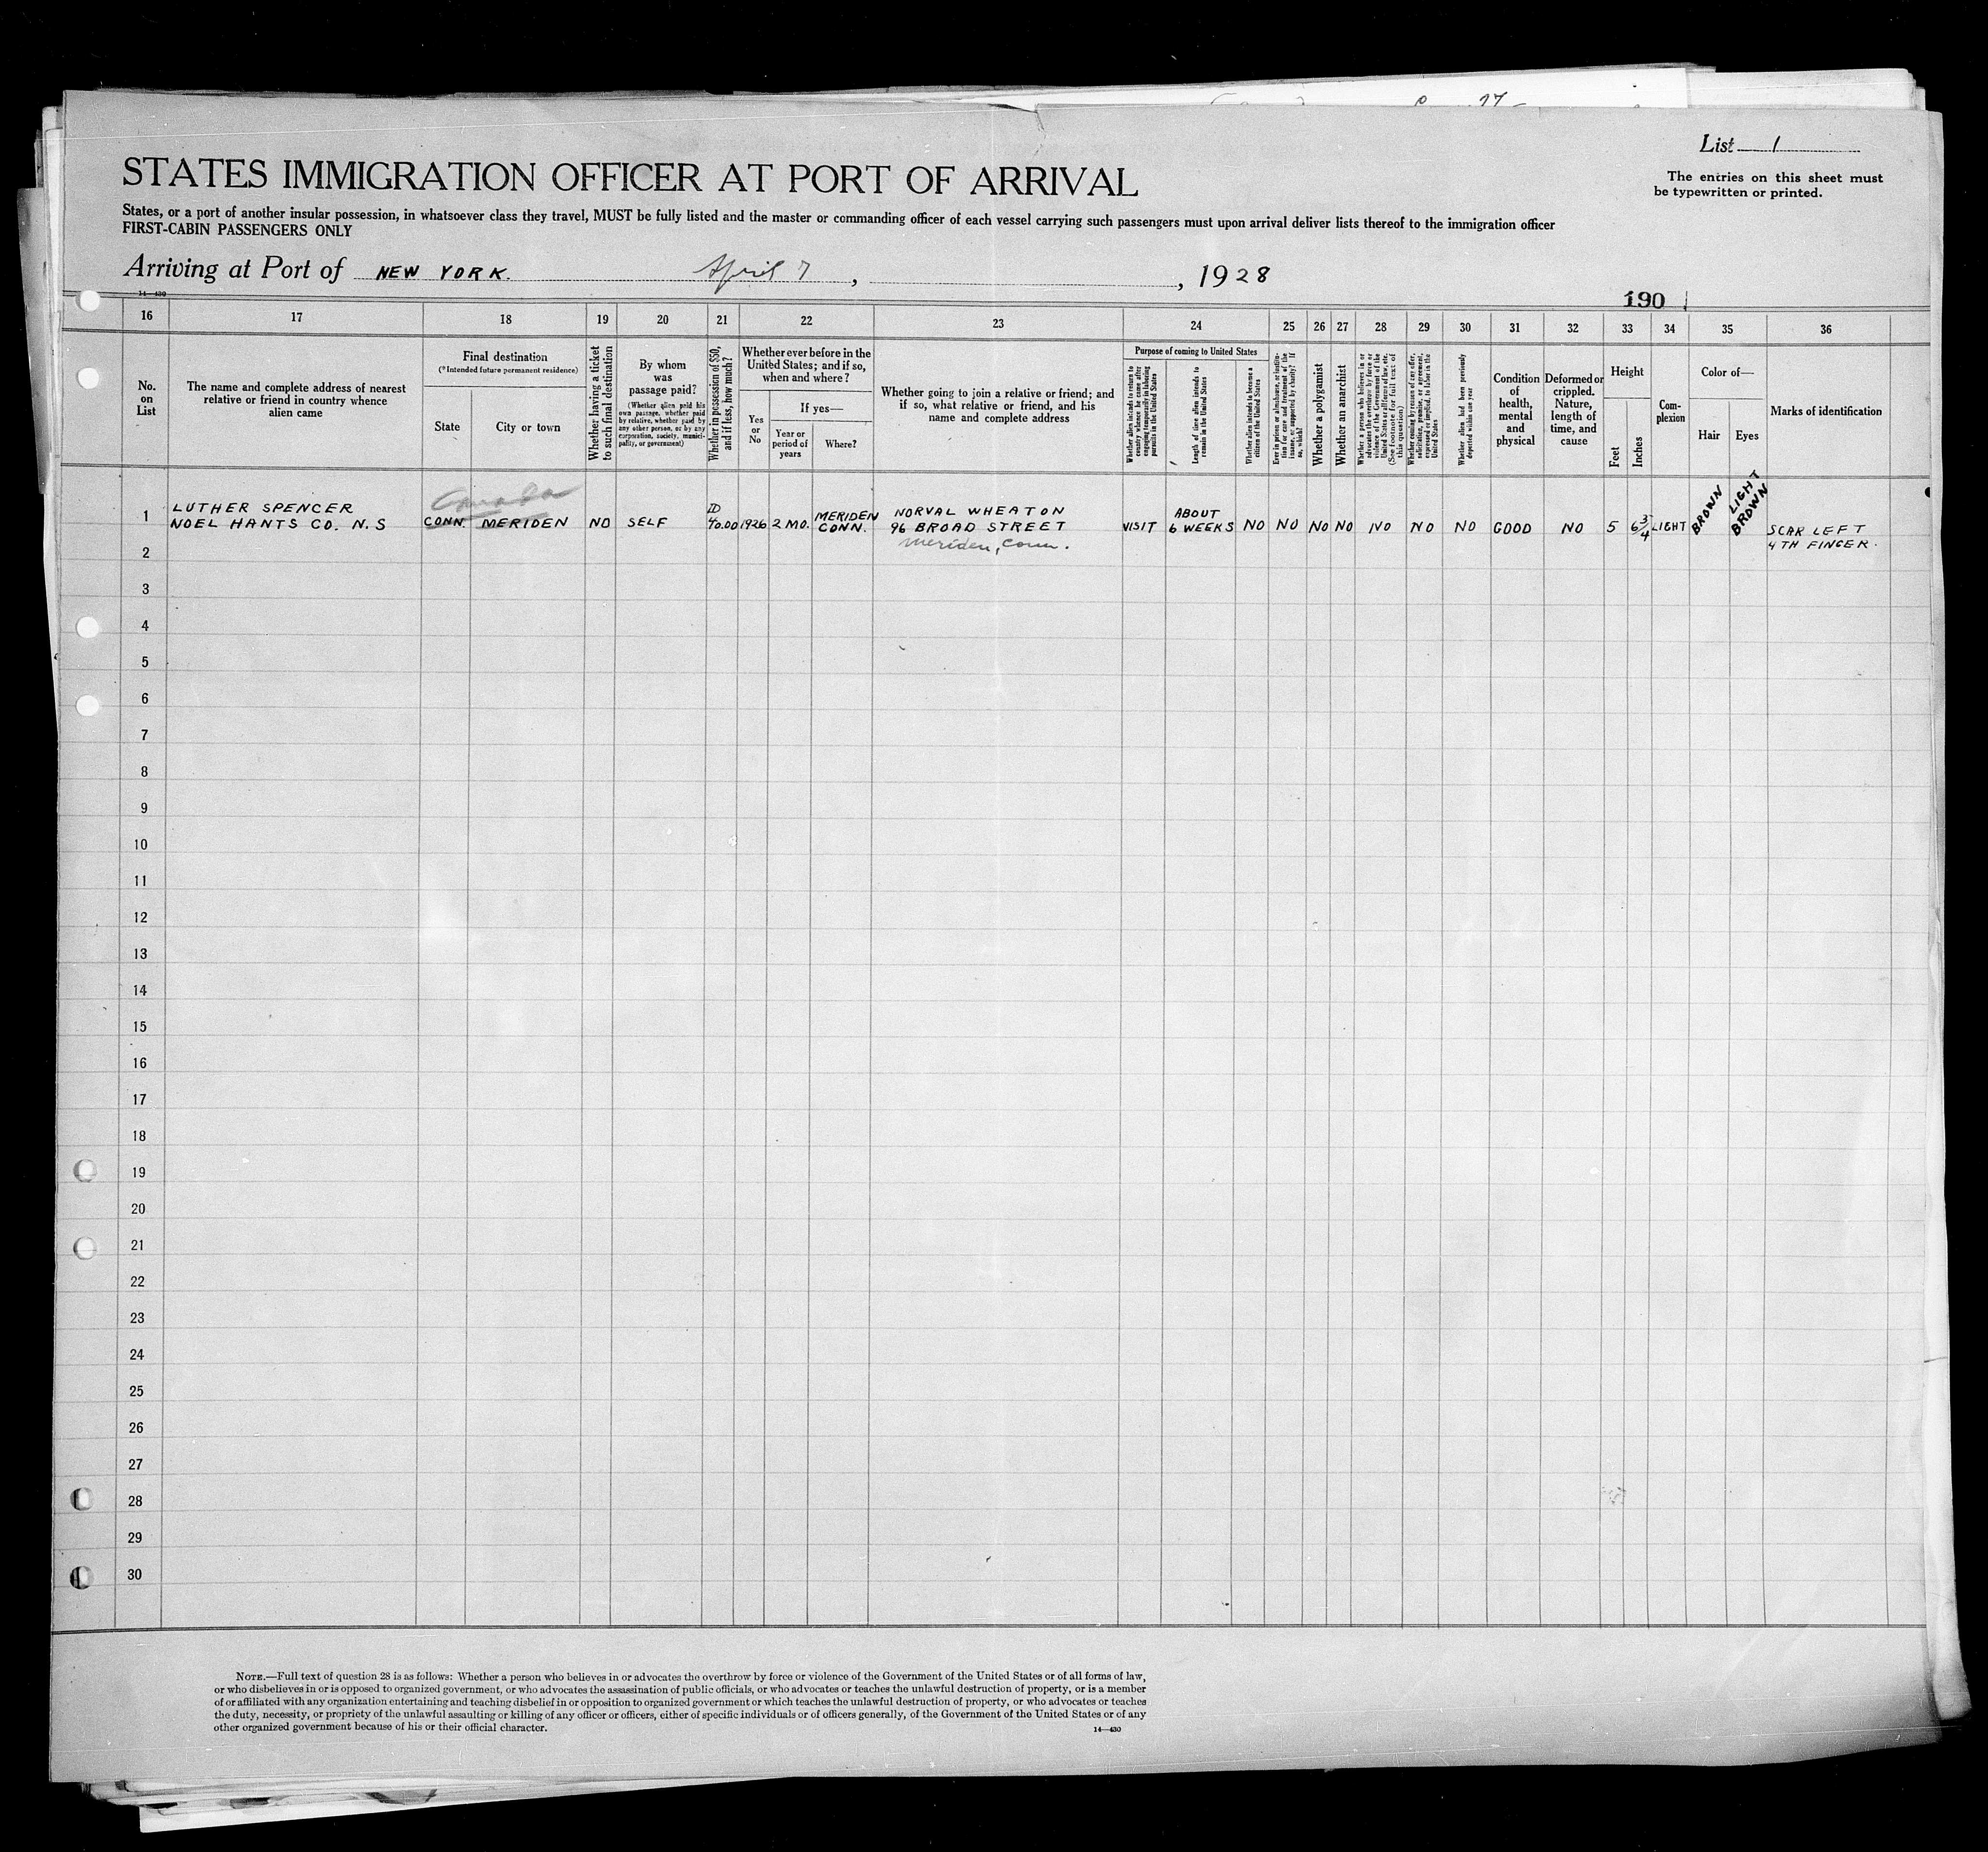 List 1
The entries on this sheet must
be typewritten or printed.
STATES IMMIGRATION OFFICER AT PORT OF ARRIVAL
States, or a port of another insular possession, in whatsoever class they travel, MUST be fully listed and the master or commanding officer of each vessel carrying such passengers must upon arrival deliver lists thereof to the immigration officer
FIRST-CABIN PASSENGERS ONLY
Arriving at Port of NEW YORK. April 7, , 1928
14—430
190
16 17 18 19 20 21 22 23 24 25 26 27 28 29 30 31 32 33 34 35 36
No.
on
List
The name and complete address of nearest
relative or friend in country whence
alien came
Final destination
(*Intended future permanent residence)
State
City or town
Whether having a ticket
to such final destination
By whom
was
passage paid?
(Whether alien paid his
own passage, whether paid
by relative, whether paid by
any other person, or by any
corporation, society, munici-
pality, or government)
Whether in possession of $50,
and if less, how much?
Whether ever before in the
United States; and if so,
when and where?
Yes
or
No
If yes—
Year or
period of
years
Where?
Whether going to join a relative or friend; and
if so, what relative or friend, and his
name and complete address
Purpose of coming to United States
Whether alien intends to return to
country whence he came after
engaging temporarily in laboring
pursuits in the United States
Length of time alien intends to
remain in the United States
Whether alien intends to become a
citizen of the United States
Ever in prison or almshouse, or institu-
tion for care and treatment of the
insane, or supported by charity? If
so, which?
Whether a polygamist
Whether an anarchist
Whether a person who believes in or
advocates the overthrow by force or
violence of the Government of the
United States or all forms of law, etc.
(See footnote for full text of
this question)
Whether coming by reason of any offer,
solicitation, promise, or agreement,
expressed or implied, to labor in the
United States
Whether alien had been previously
deported within one year
Condition
of
health,
mental
and
physical
Deformed or
crippled.
Nature,
length of
time, and
cause
Height
Feet
Inches
Com-
plexion
Color of—
Hair
Eyes
Marks of identification
1
LUTHER SPENCER
NOEL HANTS CO. N.S
Canada
CONN. MERIDEN
NO
SELF
40.00
1926
2 MO.
MERIDEN
CONN.
NORVAL WHEATON
96 BROAD STREET
Meriden, Conn.
VISIT
ABOUT
6 WEEKS
NO
NO
NO
NO
NO
NO
NO
GOOD
NO
5
6 3/4
LIGHT
BROWN
LIGHT
BROWN
SCAR LEFT
4TH FINGER.
2
3
4
5
6
7
8
9
10
11
12
13
14
15
16
17
18
19
20
21
22
23
24
25
26
27
28
29
30
NOTE.—Full text of question 28 is as follows: Whether a person who believes in or advocates the overthrow by force or violence of the Government of the United States or of all forms of law,
or who disbelieves in or is opposed to organized government, or who advocates the assassination of public officials, or who advocates or teaches the unlawful destruction of property, or is a member
of or affiliated with any organization entertaining and teaching disbelief in or opposition to organized government or which teaches the unlawful destruction of property, or who advocates or teaches
the duty, necessity, or propriety of the unlawful assaulting or killing of any officer or officers, either of specific individuals or of officers generally, of the Government of the United States or of any
other organized government because of his or their official character.
14—430